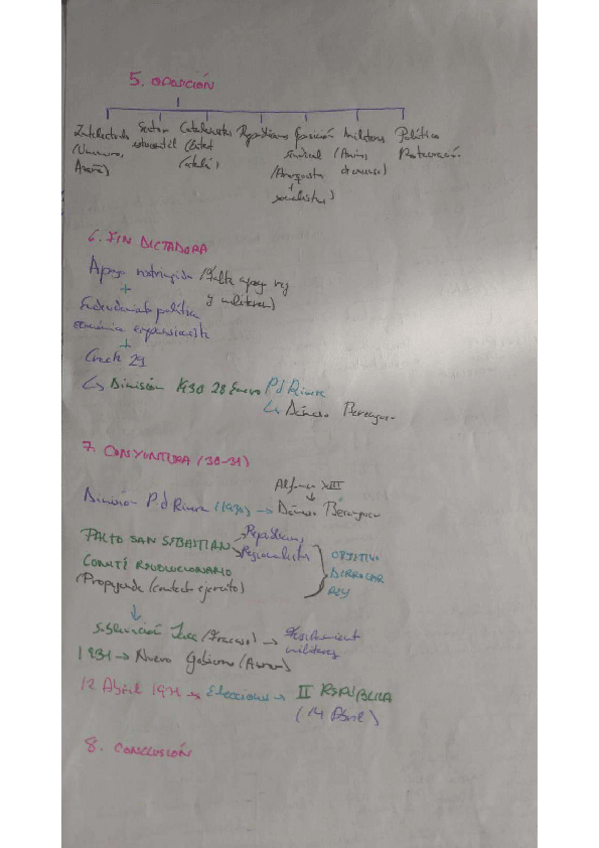 5. OPOSICIÓN
Intelectuales Sector Catalanistas Republicanos Oposición Militares Políticos
(Unamuno, estudiantil (Estat sindical (Restauración
Azaña) Català) (Anarquista
+
socialistas)
6. FIN DICTADURA
Apoyo restringido (Falta apoyo rey
+ y militares)
política
económica expansionista
+
Crack 29
↳ Dimisión 1930 28 Enero P.d Rivera
↳ Dámaso Berenguer
7. CONYUNTURA (30-31)
Alfonso XIII
↓
Dimisión P.d Rivera (1930) → Dámaso Berenguer
PACTO SAN SEBASTIAN Republicanos
Regionalistas OBJETIVO
COMITÉ REVOLUCIONARIO DERROCAR
(Propaganda (contacto ejercito) REY
↓
Sublevación Jaca (Fracaso) → Fusilamiento
militares
1931 → Nuevo Gobierno (Aznar)
12 Abril 1931 → Elecciones → II REPÚBLICA
(14 Abril)
8. CONCLUSIÓN